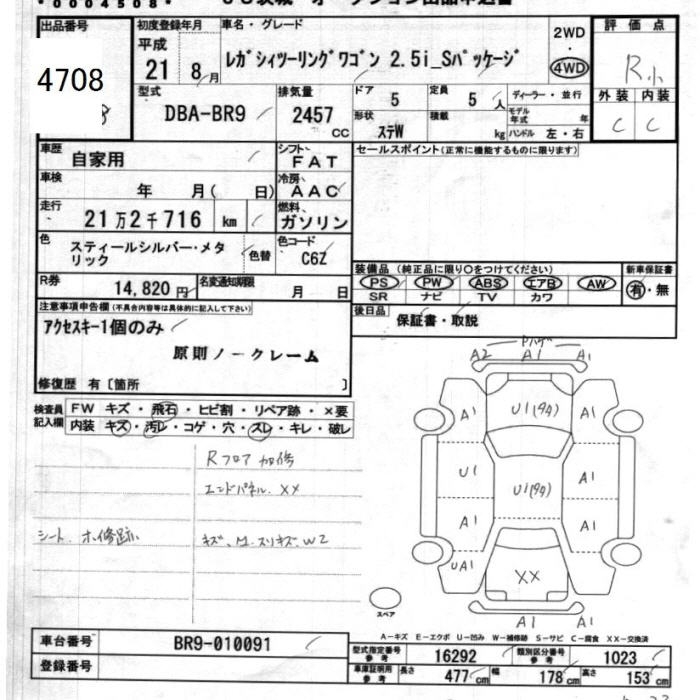 *0004508*
出品番号
4708
初度登録年月
平成
21 8月
車名・グレード
レガシィツーリングワゴン 2.5i_Sパッケージ
2WD
・
4WD
評価点
R小
外装 内装
C C
型式
DBA-BR9
排気量
2457
CC
ドア
5
定員
5人
ディーラー・並行
形状
ステW
積載
kg
モデル年式 年
ハンドル 左・右
車歴
自家用
シフト
FAT
セールスポイント(正常に機能するものに限ります)
車検
年 月( 日)
冷房
AAC
走行
21万2千716 km
燃料
ガソリン
色
スティールシルバー・メタリック
色替
色コード
C6Z
装備品 (純正品に限り○をつけてください)
PS PW ABS エアB AW
SR ナビ TV カワ
新車保証書
有・無
R券
14,820円
名変通知期限
月 日
後日品
保証書・取説
注意事項申告欄(不具合内容等は具体的に記入して下さい)
アクセスキー1個のみ
原則ノークレーム
修復歴 有〔箇所 〕
検査員記入欄
FW キズ・飛石・ヒビ割・リペア跡・×要
内装 キズ・汚レ・コゲ・穴・スレ・キレ・破レ
Rフロア 加修
エンドパネル XX
シート
キズ、M.スリキズ、W2
A2 A1 A1
A1 A1
U1 A1
A1 A1
UA1 A1
XX
A1 A1
スペア
A−キズ E−エクボ U−凹み W−補修跡 S−サビ C−腐食 XX−交換済
車台番号
BR9-010091
登録番号
型式指定番号
参考
16292
類別区分番号
参考
1023
車庫証明用
参考
長さ 477cm
幅 178cm
高さ 153cm